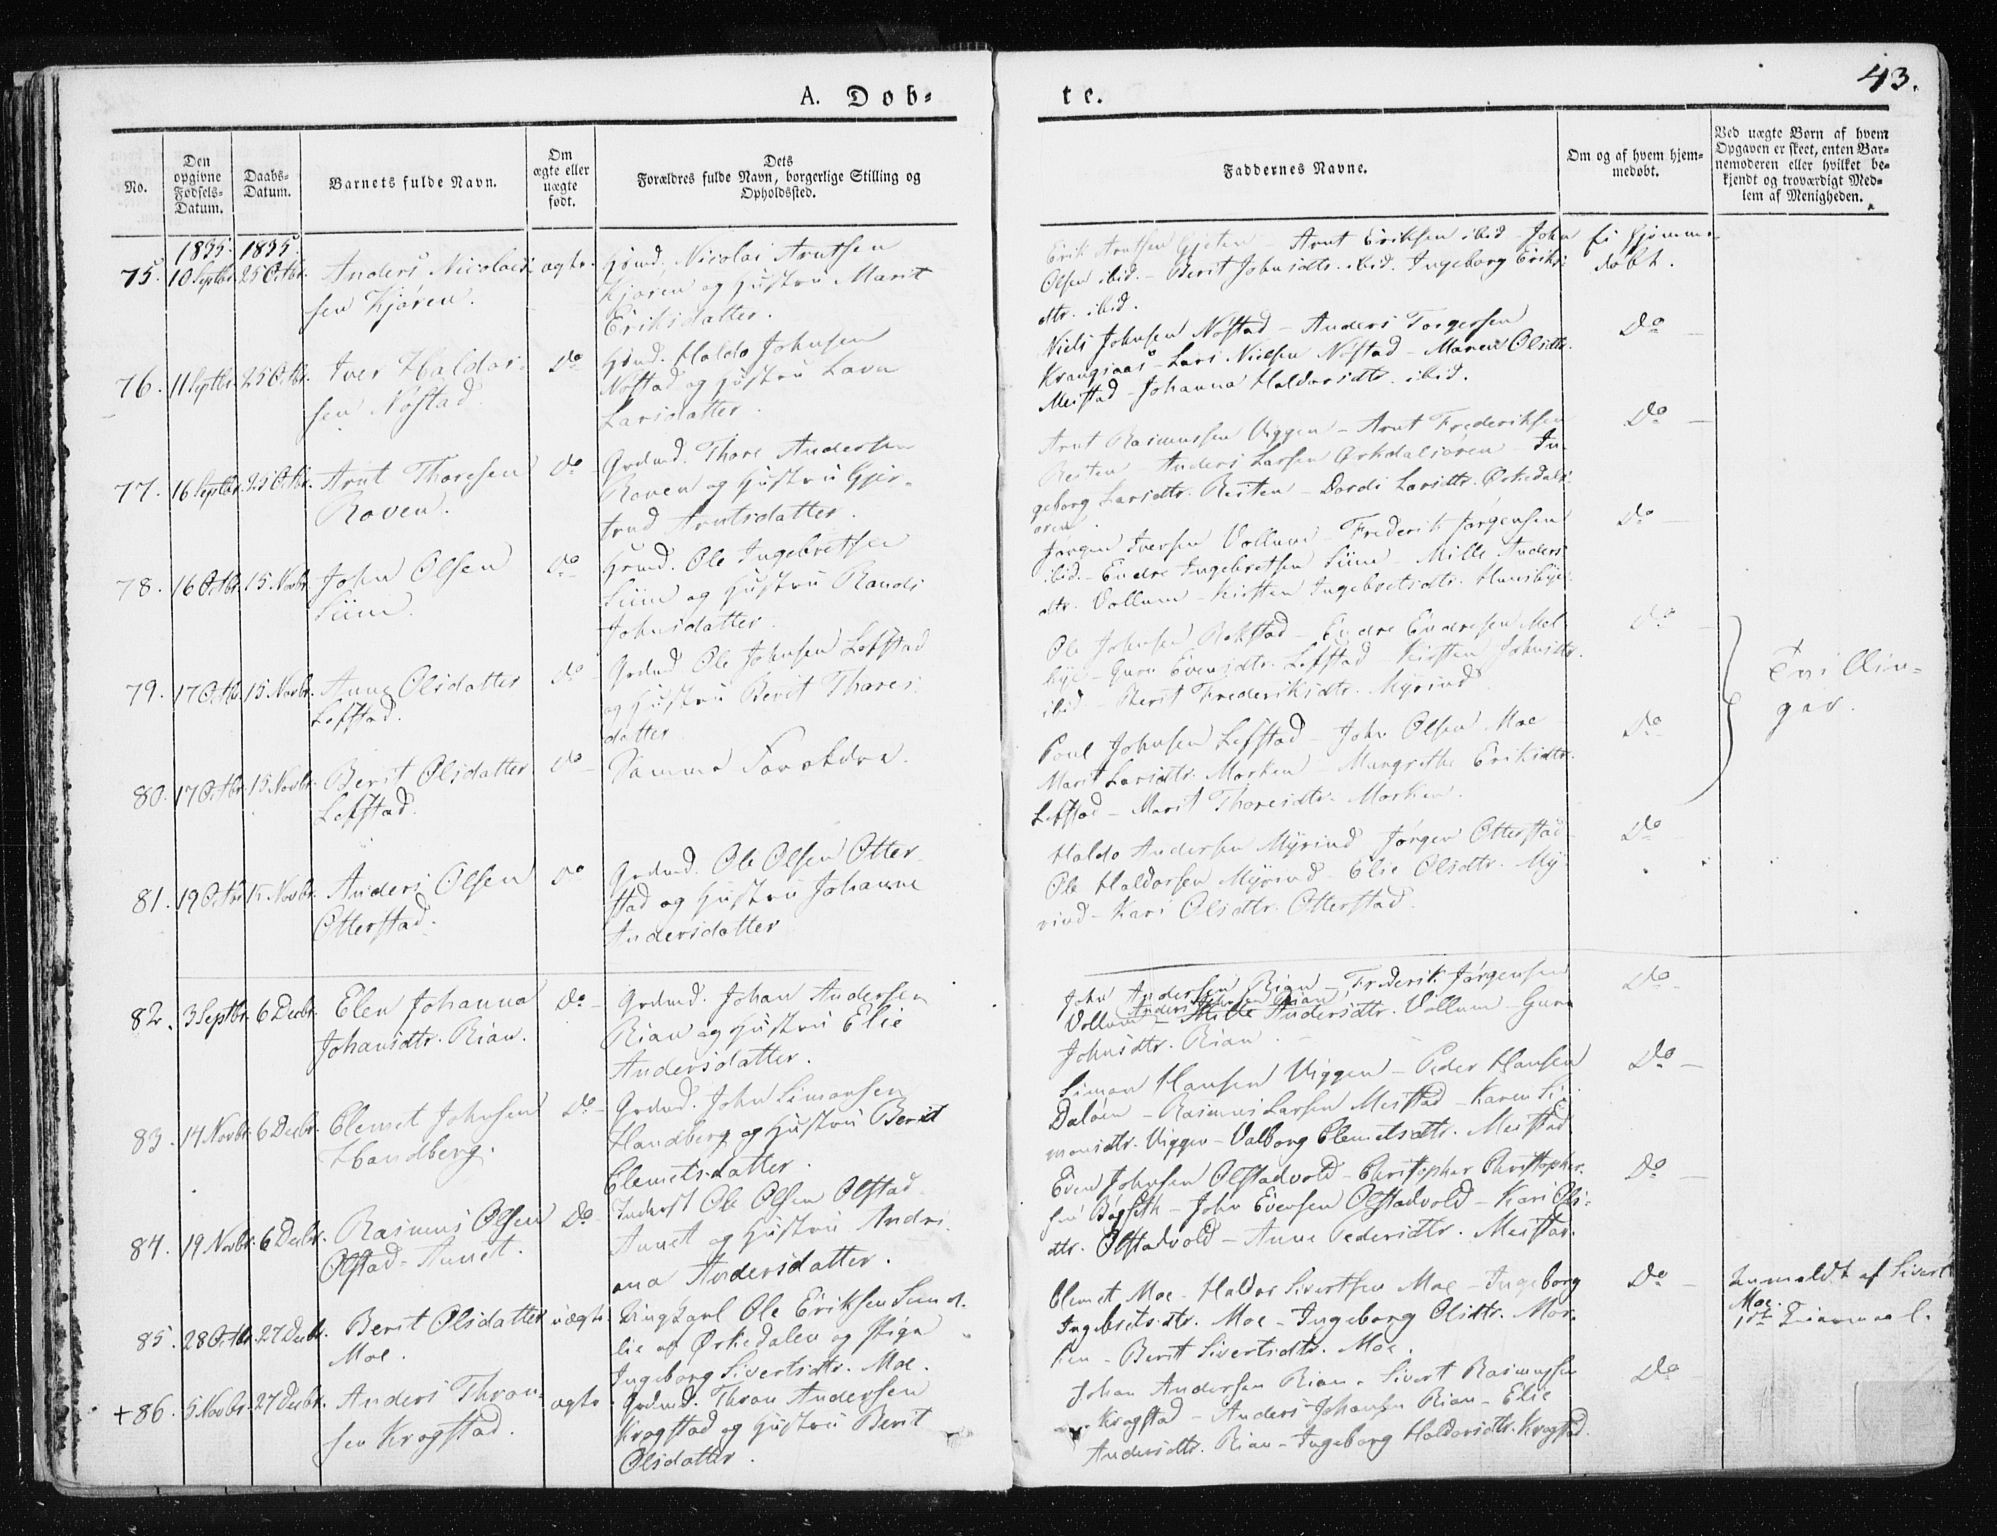 43.
A. Døb=
te.
No.
Den
opgivne
Fødsels-
Datum.
Daabs-
Datum.
Barnets fulde Navn.
Om
ægte eller
uægte
født.
Dets
Forældres fulde Navn, borgerlige Stilling og
Opholdssted.
Faddernes Navne.
Om og af hvem hjem-
medøbt.
Ved uægte Børn af hvem
Opgaven er skeet, enten Bar-
nemoderen eller hvilket be-
kjendt og troværdigt Med-
lem af Menigheden.
1835. 1835
75. 10 Septbr. 25 Octbr. Anders Nicolai-
sen Kjøren.
ægte.
Nicolai Arntsen
Kjøren og Hustru Marit
Eriksdatter.
Erik Arntsen Gjeten - Arnt Eriksen ibid - John
Olsen ibid. - Berit Johnsdtr. ibid. Ingeborg Eriks-
dtr. ibid.
Ei hjemme-
døbt.
76. 11 Septbr. 25 Octbr. Iver Haldor-
sen Nøstad.
Do
Haldo Johnsen
Nøstad og Hustru
Larsdatter.
Niels Johnsen Nøstad - Anders Torgersen
Krangsaas - Lars Nielsen Nøstad - Maren Olsdtr.
Meistad - Johanna Haldorsdtr. ibid.
Do
77. 16 Septbr. 25 Octbr. Arnt Thoresen
Roven.
Do
Grdmd. Thore Andersen
Roven og Hustru Gjer-
trud Arntsdatter.
Arnt Rasmussen Viggen - Arnt Frederiksen
Reiten - Anders Larsen Orkdalsøren - In-
geborg Larsdtr. Reiten - Dordi Larsdtr. Orkedals-
øren.
Do
78. 16 Octbr. 15 Novbr. John Olsen
Siim.
Do
Ole Ingebretsen
Siim og Hustru Randi
Johnsdatter.
Jørgen Iversen Vollum - Frederik Jørgensen
ibid. - Endre Ingebretsen Siim - Mille Anders-
dtr. Vollum - Kirsten Ingebretsdtr.
Do
79. 17 Octbr. 15 Novbr. Anne Olsdatter
Lefstad.
Do
Grdmd. Ole Johnsen Lefstad
og Hustru Berit Thores-
datter.
Ole Johnsen Rekstad - Endre Endresen Mel-
bye - Guru Evensdtr. Lefstad - Kirsten Johnsdtr.
ibid - Berit Frederiksdtr. Myrind
Do
Tvillin-
ger.
80. 17 Octbr. 15 Novbr. Berit Olsdatter
Lefstad.
Do
Samme Forældre.
Poul Johnsen Lefstad - John Olsen Moe
Marit Larsdtr. Morken - Mangrethe Eriksdtr.
Lefstad - Marit Thoresdtr. Morken.
Do
81. 19 Octbr. 15 Novbr. Anders Olsen
Otterstad.
Do
Grdmd. Ole Olsen Otter-
stad og Hustru Johanne
Andersdatter
Haldo Andersen Myrind Jørgen Otterstad
Ole Haldorsen Myrind - Elie Olsdtr. My-
rind - Kari Olsdtr. Otterstad.
Do
82. 3 Septbr. 6 Decbr. Elen Johanna
Johansdtr. Rian.
Do
Grdmd. Johan Andersen
Rian og Hustru Elie
Andersdatter.
John Andersen Rian - Frederik Jørgensen
Anders Johnsen Rian
Vollum - Mille Andersdtr. Vollum - Guru
Johnsdtr. Rian.
Do
83. 14 Novbr. 6 Decbr. Clemet Johnsen
Handberg.
Do
Grdmd. John Simonsen
Handberg og Hustru Berit
Clemetsdatter.
Simon Hansen Viggen - Peder Hansen
Daløen - Rasmus Larsen Meistad - Karen Si-
monsdtr. Viggen - Valborg Clemetsdtr. Meistad
Do
84. 19 Novbr. 6 Decbr. Rasmus Olsen
Ølstad-Annet.
Do
Inderst Ole Olsen Ølstad-
Annet og Hustru Andri-
ana Andersdatter.
Even Johnsen Ølstadvold - Christopher Christopher-
sen Bøgseth - John Evensen Ølstadvold - Kari Ols-
dtr. Ølstadvold - Anne Pedersdtr. Meistad.
Do
85. 28 Octbr. 27 Decbr. Berit Olsdatter
Moe.
uægte
Ungkarl Ole Eriksen Sund-
lie af Ørkedalen og Pige
Ingeborg Sivertsdtr. Moe.
Clemet Moe - Haldor Sivertsen Moe - Ingeborg
Ingebretsdtr. Moe - Ingeborg Olsdtr. Mor-
ken - Berit Sivertsdtr. Moe.
Do
Anmeldt af Sivert
Moe.
+86. 5 Novbr. 27 Decbr. Anders Thron-
sen Krogstad.
ægte
Grdmd. Thron Andersen
Krogstad og Hustru Berit
Olsdatter.
Johan Andersen Rian - Sivert Rasmussen
Krogstad - Anders Johansen Rian - Elie
Andersdtr. Rian - Ingeborg Haldorsdtr. Krogstad.
Do